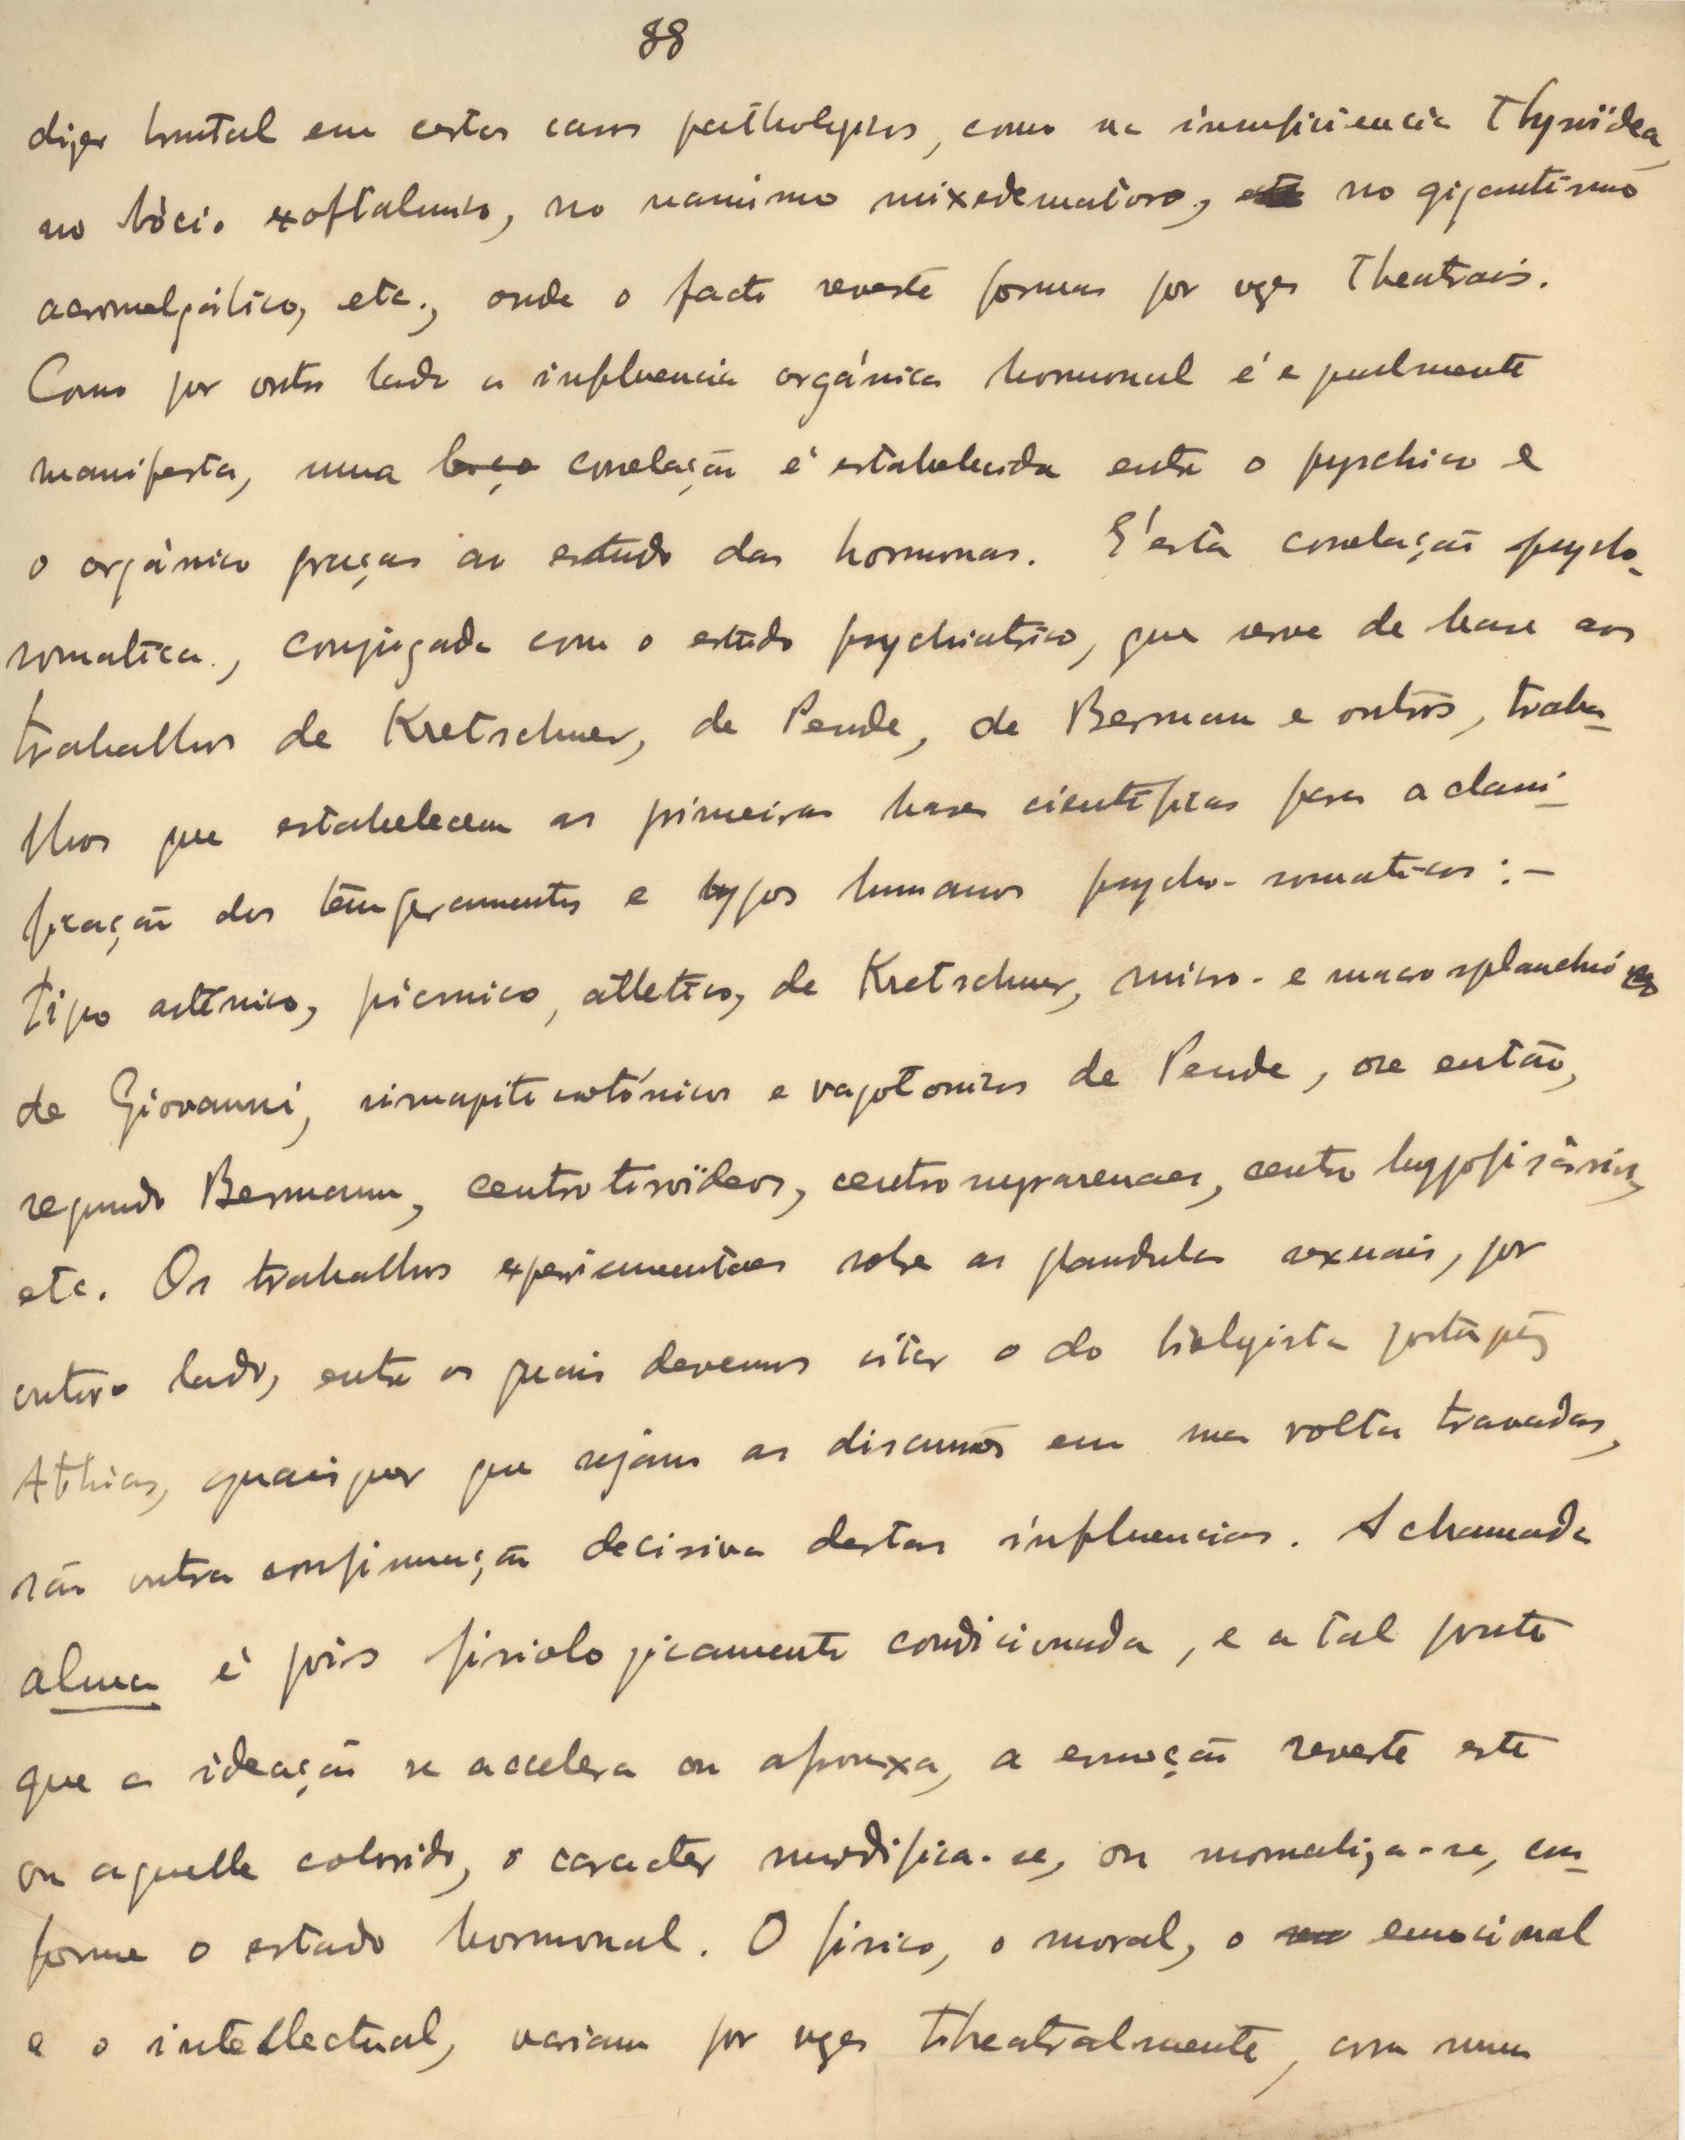 88
dizer brutal em certos casos pathologicos, como na insuficiencia thyroïdea,
no bócio exoftalmico, no nanismo mixedematoso, no gigantismo
acromelgálico, etc., onde o facto reveste formas por vezes theatrais.
Como por outro lado a influencia orgánica hormonal é egualmente
manifesta, uma laço correlação é estabelecida entre o psychico e
o orgánico graças ao estudo das hormonas. E' esta correlação psycho-
somatica, conjugada com o estudo psychiatrico, que serve de base aos
trabalhos de Kretschmer, de Pende, de Berman e outros, traba-
lhos que estabelecem as primeiras bases cientificas para a classi-
ficação dos temperamentos e typos humanos psycho-somaticos:-
tipo asténico, picnico, atletico, de Kretschmer, micro- e macrosplanchnicos
de Giovanni, simapiticotónicos e vagotonicos de Pende, ou então,
segundo Bermann, centrotiroïdeos, centrosuprarenaes, centro hyppofisários,
etc. Os trabalhos experiementaes sobre as glandulas sexuais, por
outro lado, entre os quais devemos citar o do biologista portuguez
Athias, quaisquer que sejam as discussões em sua volta travadas,
são outra confirmação decisiva destas influencias. A chamada
alma é pois fisiologicamente condicionada, e a tal ponto
que a ideação se accelera ou afrouxa, a emoção reveste este
ou aquelle colorido, o caracter modifica-se, ou normaliza-se, con-
forme o estado hormonal. O fisico, o moral, o emocional
e o intellectual, variam por vezes theatralmente, com uma